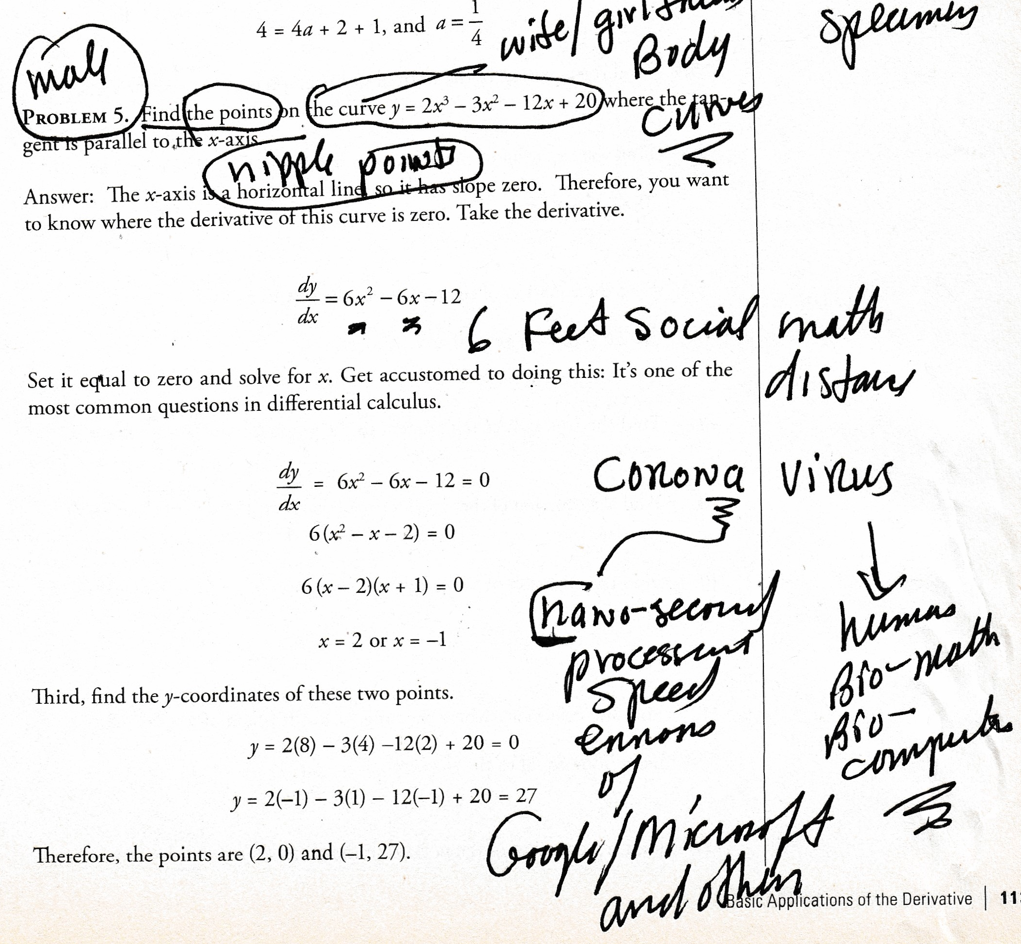 4 = 4a + 2 + 1, and a = 1/4
wife/
Body
curves
male
PROBLEM 5. Find the points on the curve y = 2x³ − 3x² − 12x + 20 where the tan-
gent is parallel to the x-axis.
nipple points
Answer: The x-axis is a horizontal line, so it has slope zero. Therefore, you want
to know where the derivative of this curve is zero. Take the derivative.
dy/dx = 6x² − 6x − 12
6 Feet social math
distans
Set it equal to zero and solve for x. Get accustomed to doing this: It's one of the
most common questions in differential calculus.
Corona virus
dy/dx = 6x² − 6x − 12 = 0
6(x² − x − 2) = 0
6(x − 2)(x + 1) = 0
x = 2 or x = −1
nano-second
speed
errors
of
Google/Microsoft
and others
human
Bio-math
Bio-
computer
Third, find the y-coordinates of these two points.
y = 2(8) − 3(4) −12(2) + 20 = 0
y = 2(−1) − 3(1) − 12(−1) + 20 = 27
Therefore, the points are (2, 0) and (−1, 27).
Basic Applications of the Derivative | 11